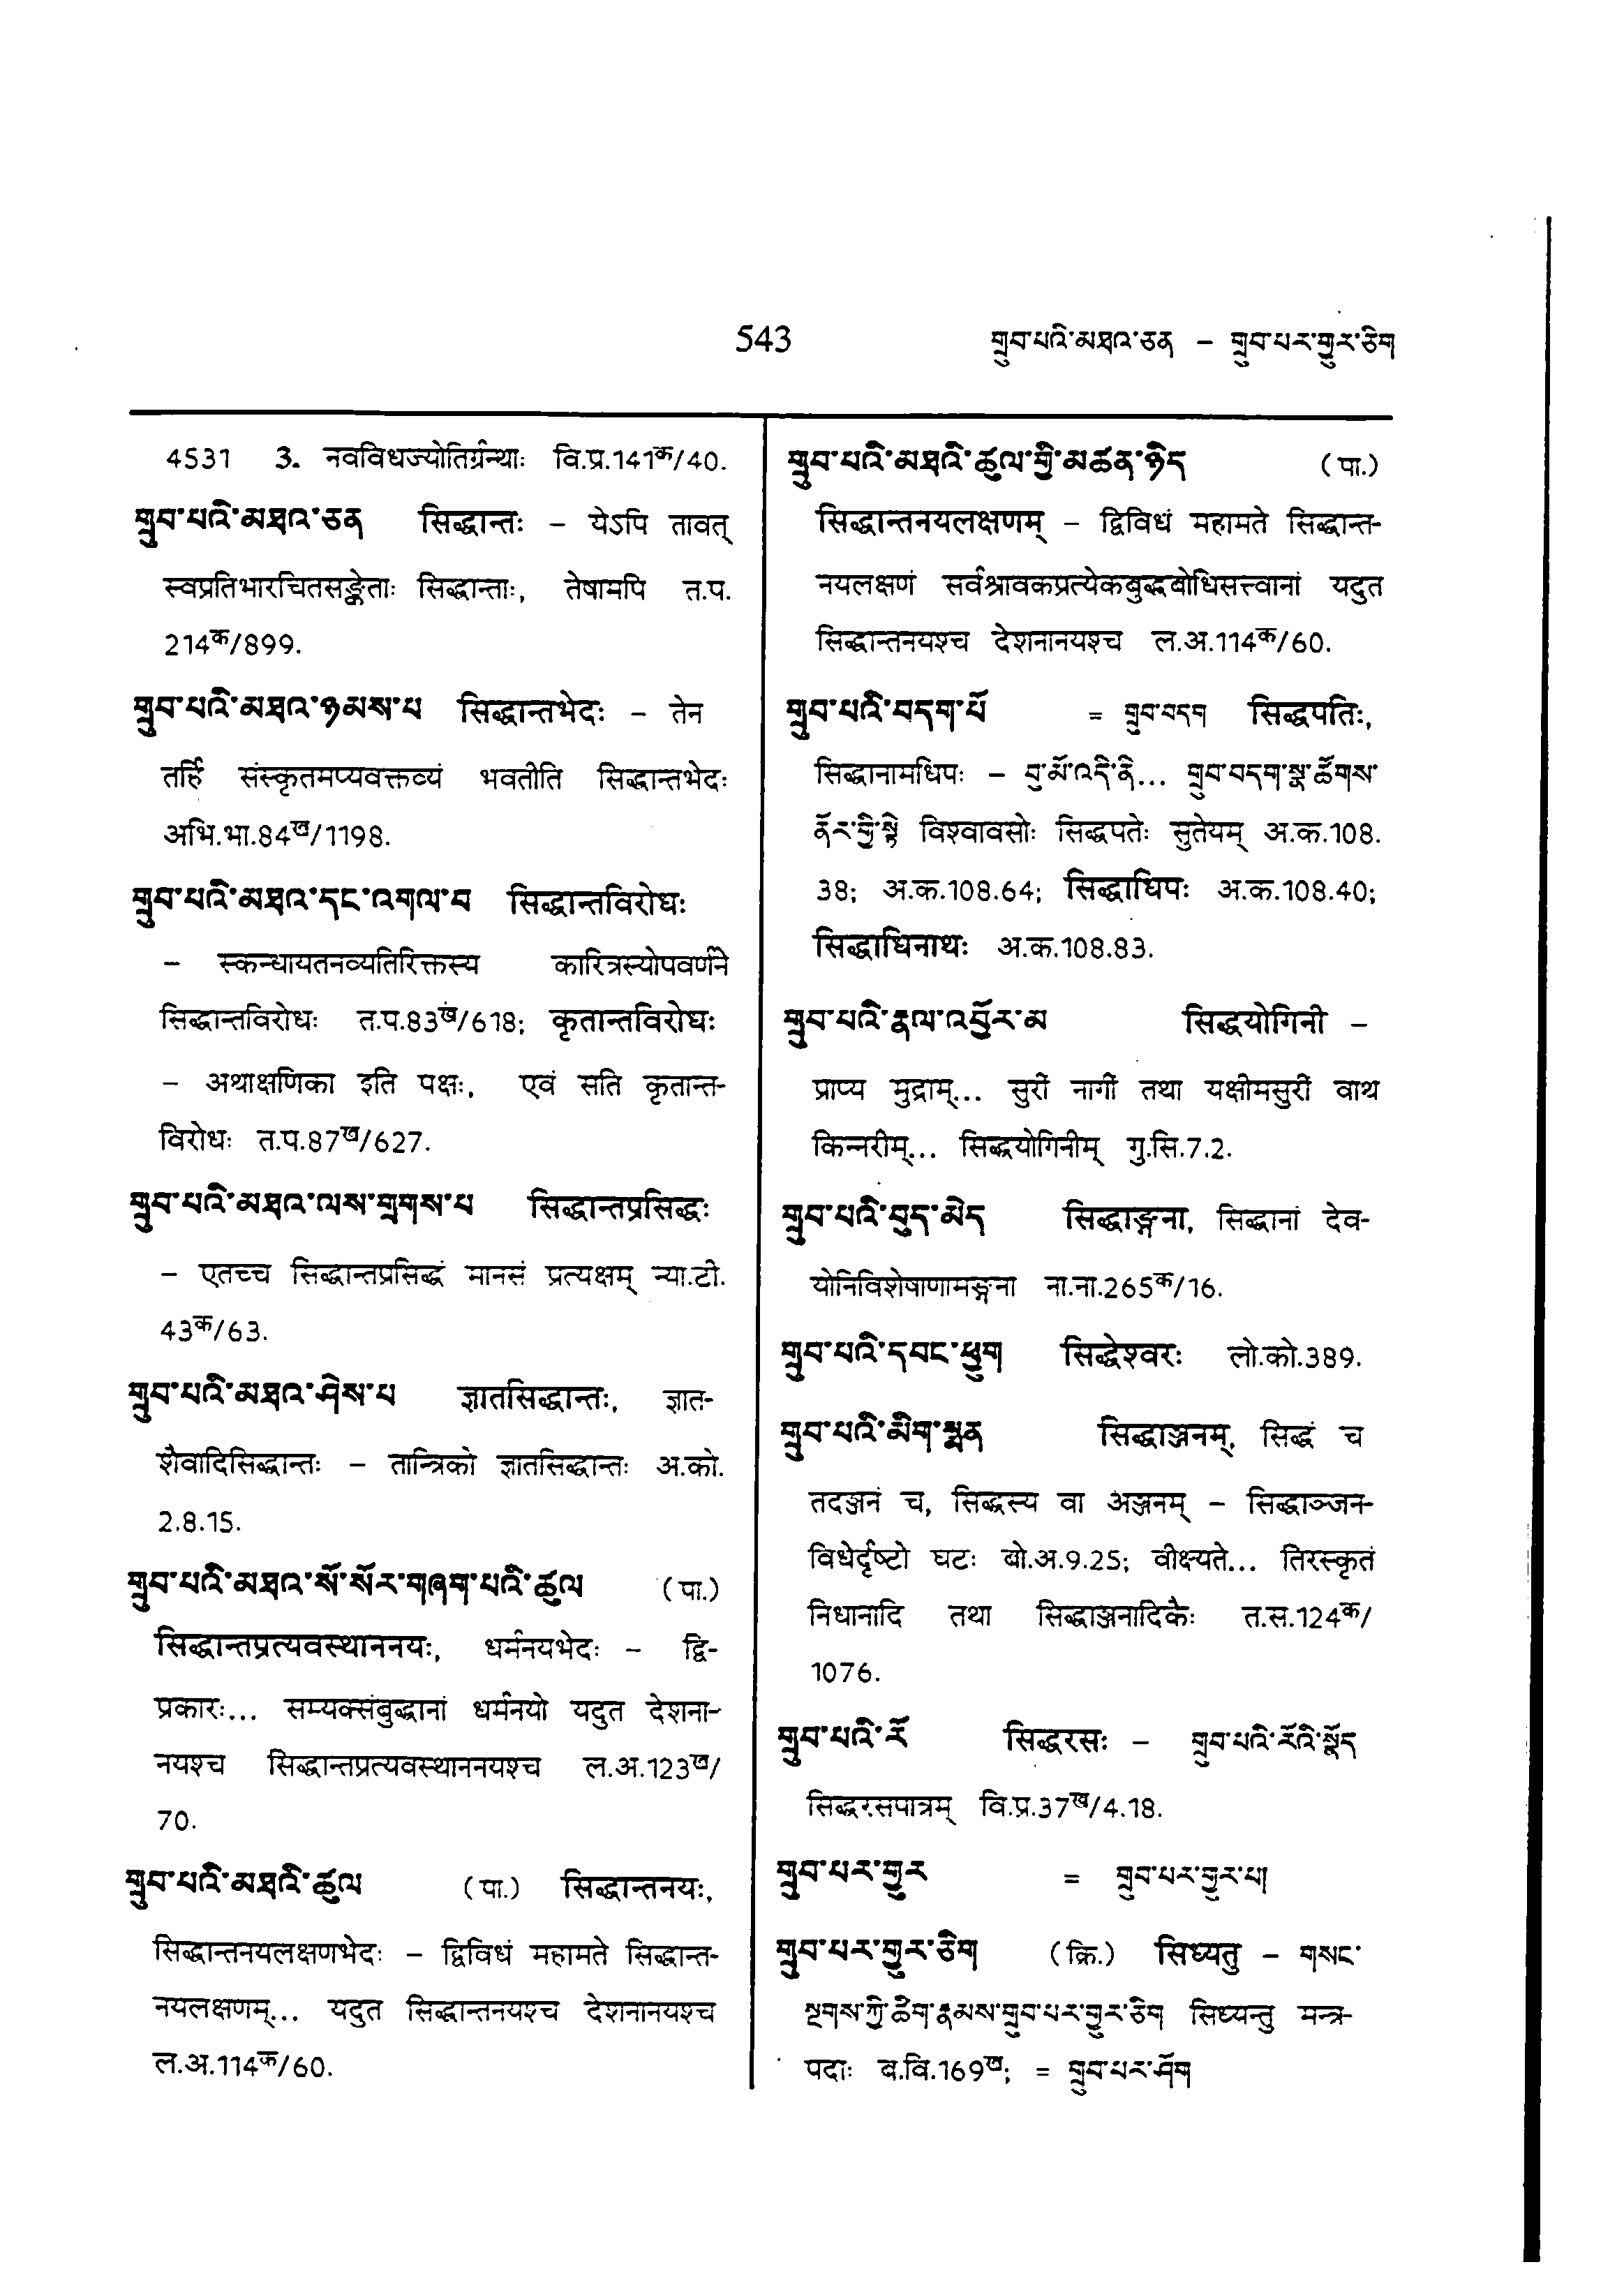 543
གྲུབ་པའི་མཐའ་ཅན – གྲུབ་པར་གྱུར་ཅིག
4531 3. नवविधज्योतिर्ग्रन्थाः वि.प्र.141क/40.
གྲུབ་པའི་མཐའ་ཅན सिद्धान्तः – येऽपि तावत्
स्वप्रतिभारचितसङ्केताः सिद्धान्ताः, तेषामपि त.प.
214क/899.
གྲུབ་པའི་མཐའ་ཉམས་པ सिद्धान्तभेदः – तेन
तर्हि संस्कृतमप्यवक्तव्यं भवतीति सिद्धान्तभेदः
अभि.भा.84ख/1198.
གྲུབ་པའི་མཐའ་དང་འགལ་བ सिद्धान्तविरोधः
– स्कन्धायतनव्यतिरिक्तस्य कारित्रस्योपवर्णने
सिद्धान्तविरोधः त.प.83ख/618; कृतान्तविरोधः
– अथाक्षणिका इति पक्षः, एवं सति कृतान्त-
विरोधः त.प.87ख/627.
གྲུབ་པའི་མཐའ་ལས་གྲགས་པ सिद्धान्तप्रसिद्धः
– एतच्च सिद्धान्तप्रसिद्धं मानसं प्रत्यक्षम् न्या.टी.
43क/63.
གྲུབ་པའི་མཐའ་ཤེས་པ ज्ञातसिद्धान्तः, ज्ञात-
शैवादिसिद्धान्तः – तान्त्रिको ज्ञातसिद्धान्तः अ.को.
2.8.15.
གྲུབ་པའི་མཐའ་སོ་སོར་གཞག་པའི་ཚུལ (पा.)
सिद्धान्तप्रत्यवस्थाननयः, धर्मनयभेदः – द्वि-
प्रकारः... सम्यक्संबुद्धानां धर्मनयो यदुत देशना-
नयश्च सिद्धान्तप्रत्यवस्थाननयश्च ल.अ.123ख/
70.
གྲུབ་པའི་མཐའི་ཚུལ (पा.) सिद्धान्तनयः,
सिद्धान्तनयलक्षणभेदः – द्विविधं महामते सिद्धान्त-
नयलक्षणम्... यदुत सिद्धान्तनयश्च देशनानयश्च
ल.अ.114क/60.
གྲུབ་པའི་མཐའི་ཚུལ་གྱི་མཚན་ཉིད (पा.)
सिद्धान्तनयलक्षणम् – द्विविधं महामते सिद्धान्त-
नयलक्षणं सर्वश्रावकप्रत्येकबुद्धबोधिसत्त्वानां यदुत
सिद्धान्तनयश्च देशनानयश्च ल.अ.114क/60.
གྲུབ་པའི་བདག་པོ = གྲུབ་བདག सिद्धपतिः,
सिद्धानामधिपः – བུ་མོ་འདི་ནི... གྲུབ་བདག་སྣ་ཚོགས་
ནོར་གྱི་སྟེ विश्वावसोः सिद्धपतेः सुतेयम् अ.क.108.
38; अ.क.108.64; सिद्धाधिपः अ.क.108.40;
सिद्धाधिनाथः अ.क.108.83.
གྲུབ་པའི་རྣལ་འབྱོར་མ सिद्धयोगिनी –
प्राप्य मुद्राम्... सुरीं नागीं तथा यक्षीमसुरीं वाथ
किन्नरीम्... सिद्धयोगिनीम् गु.सि.7.2.
གྲུབ་པའི་བུད་མེད सिद्धाङ्गना, सिद्धानां देव-
योनिविशेषाणामङ्गना ना.ना.265क/16.
གྲུབ་པའི་དབང་ཕྱུག सिद्धेश्वरः लो.को.389.
གྲུབ་པའི་མིག་སྨན सिद्धाञ्जनम्, सिद्धं च
तदञ्जनं च, सिद्धस्य वा अञ्जनम् – सिद्धाञ्जन-
विधेर्दृष्टो घटः बो.अ.9.25; वीक्ष्यते... तिरस्कृतं
निधानादि तथा सिद्धाञ्जनादिकैः त.स.124क/
1076.
གྲུབ་པའི་རོ सिद्धरसः – གྲུབ་པའི་རོའི་སྣོད
सिद्धरसपात्रम् वि.प्र.37ख/4.18.
གྲུབ་པར་གྱུར = གྲུབ་པར་གྱུར་པ།
གྲུབ་པར་གྱུར་ཅིག (क्रि.) सिध्यतु – གསང་
སྔགས་ཀྱི་ཚིག་རྣམས་གྲུབ་པར་གྱུར་ཅིག सिध्यन्तु मन्त्र-
पदाः ब.वि.169ख; = གྲུབ་པར་ཤོག